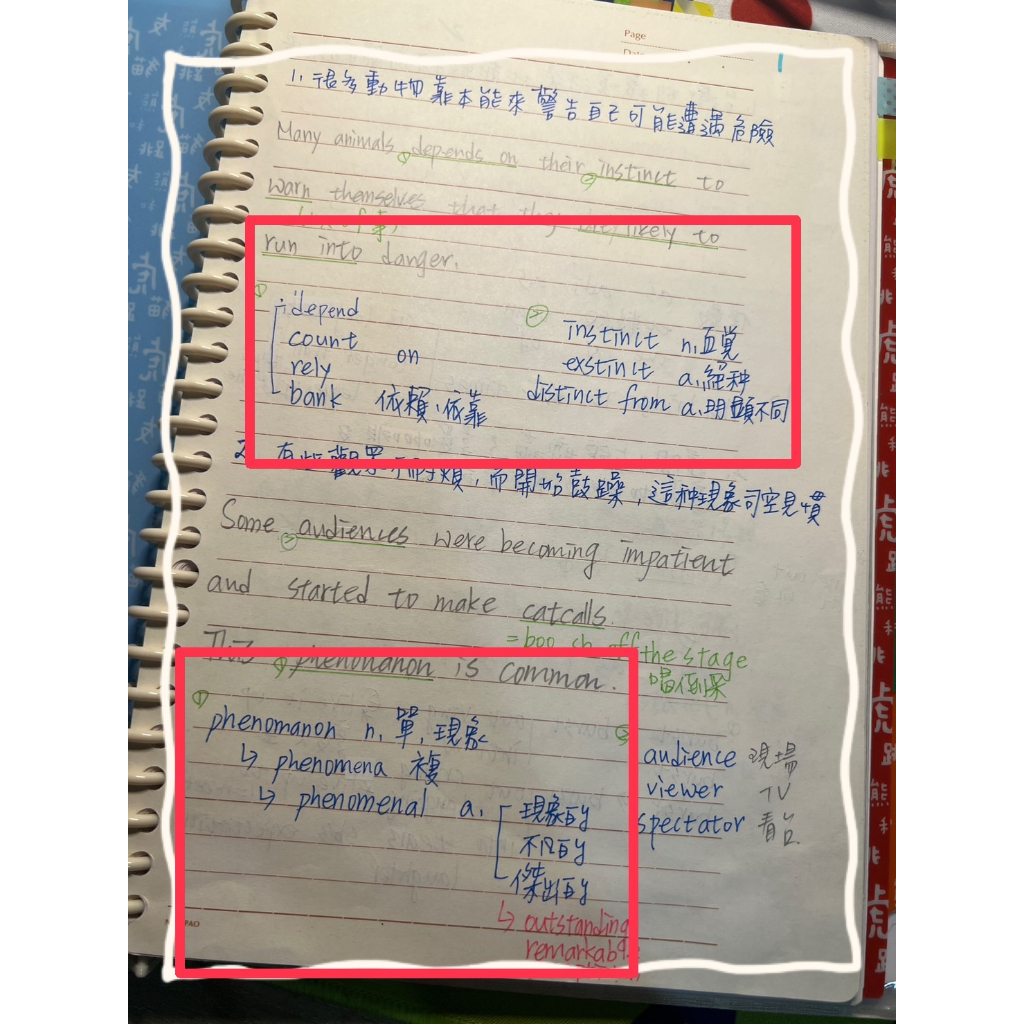 Page
1. 很多動物靠本能來警告自己可能遭遇危險
Many animals depends on their instinct to
warn themselves that they are likely to
run into danger.
depend
count
rely
bank
on
依賴、依靠
instinct n. 直覚
exstinct a. 絕种
distinct from a. 明顯不同
2. 有些觀眾不耐煩,而開始鼓躁,這种現象司空見慣
Some audiences were becoming impatient
and started to make catcalls.
= boo sb off the stage
喝倒采
This phenomanon is common.
phenomanon n. 單. 現象
↳ phenomena 複
↳ phenomenal a.
現象的
不凡的
傑出的
↳ outstanding
audience 現場
viewer TV
spectator 看台